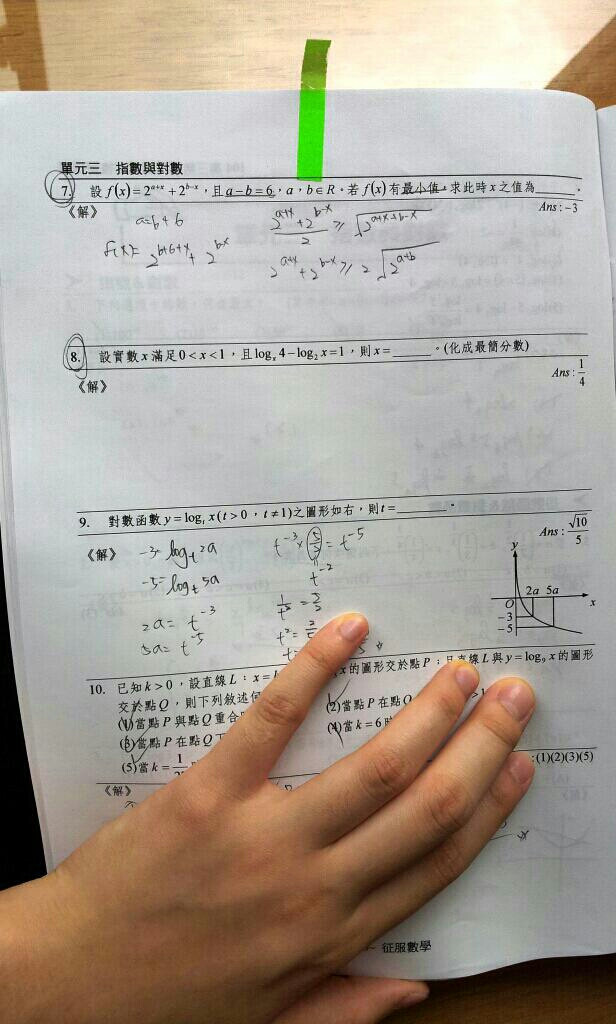 單元三 指數與對數
7. 設 f(x)=2^{a+x}+2^{b-x}，且 a-b=6，a，b∈R。若 f(x) 有最小值，求此時 x 之值為____。
《解》 Ans：-3
a=b+6
f(x)= 2^{b+6+x} + 2^{b-x}
\frac{2^{a+x}+2^{b-x}}{2} ≥ \sqrt{2^{a+x+b-x}}
2^{a+x}+2^{b-x} ≥ 2\sqrt{2^{a+b}}
8. 設實數 x 滿足 0<x<1，且 log_x 4 - log_2 x = 1，則 x=____。(化成最簡分數)
《解》 Ans：\frac{1}{4}
9. 對數函數 y=log_t x (t>0，t≠1)之圖形如右，則 t=____。
《解》 Ans：\frac{\sqrt{10}}{5}
-3=log_t 2a
-5=log_t 5a
2a=t^{-3}
5a=t^{-5}
t^{-3}×\frac{5}{2}=t^{-5}
t^{-2}
\frac{1}{t^2}=\frac{5}{2}
t^2=
y
2a 5a
O x
-3
-5
10. 已知 k>0，設直線 L：x= x 的圖形交於點 P；且直線 L 與 y=log_9 x 的圖形
交於點 Q，則下列敘述
(1)當點 P 與點 Q 重合 (2)當點 P 在點 Q
(3)當點 P 在點 Q (4)當 k=6
(5)當 k=
:(1)(2)(3)(5)
《解》
征服數學